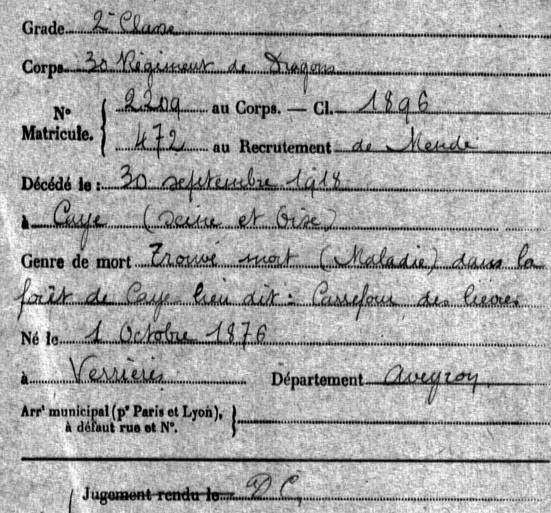 Grade 2e Classe
Corps 30 Régiment de Dragons
N° Matricule. { 2209 au Corps. — Cl. 1896
472 au Recrutement de Mende
Décédé le : 30 septembre 1918
à Caye (Seine et Oise)
Genre de mort Trouvé mort (Maladie) dans la
forêt de Caye lieu dit : Carrefour des lievres
Né le 1 Octobre 1876
à Verrières Département Aveyron
Arrt municipal (pr Paris et Lyon), }
à défaut rue et N°.
Jugement rendu le D C,